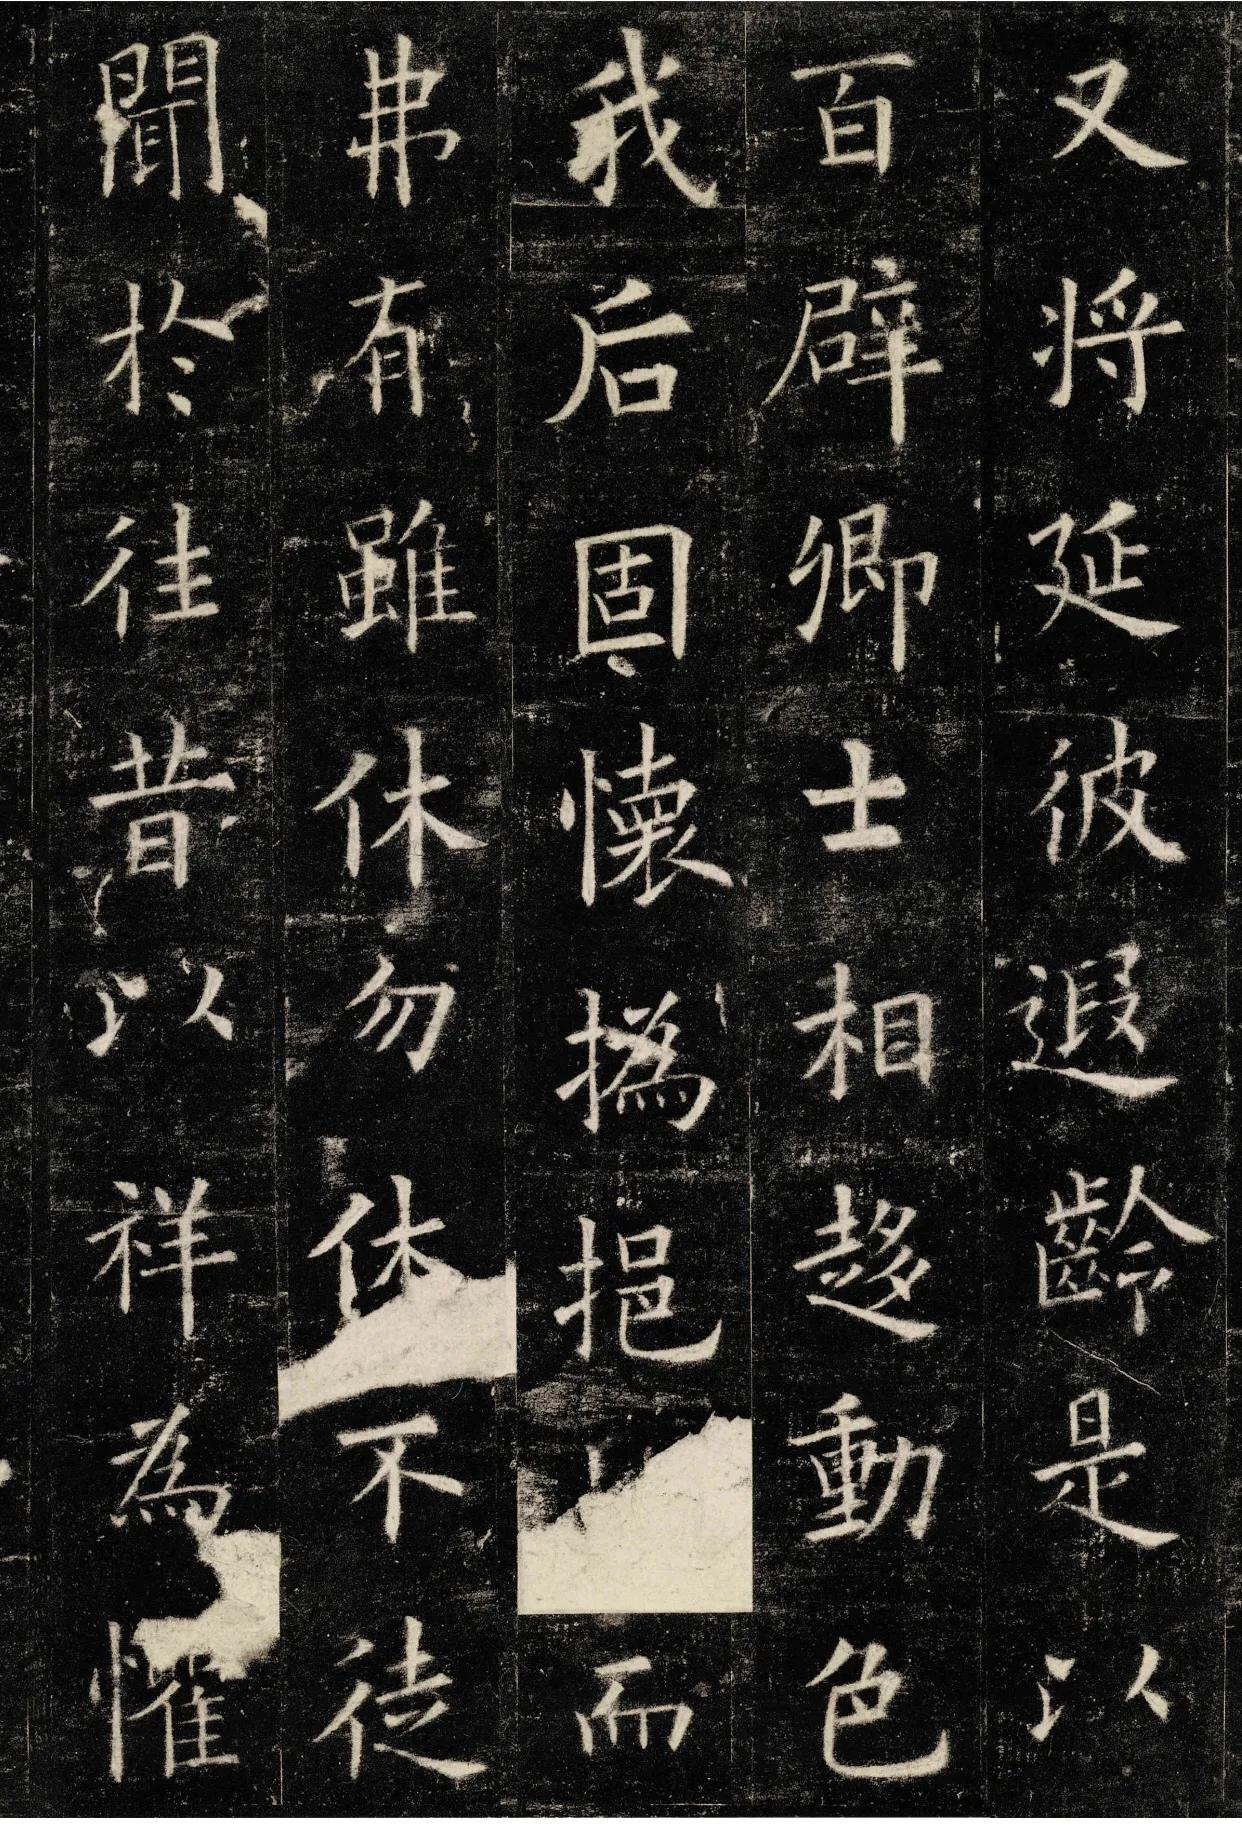 又將延彼遐齡是以
百辟卿士相趍動色
我后固懷撝挹而
弗有雖休勿休不徒
聞於往昔以祥為懼